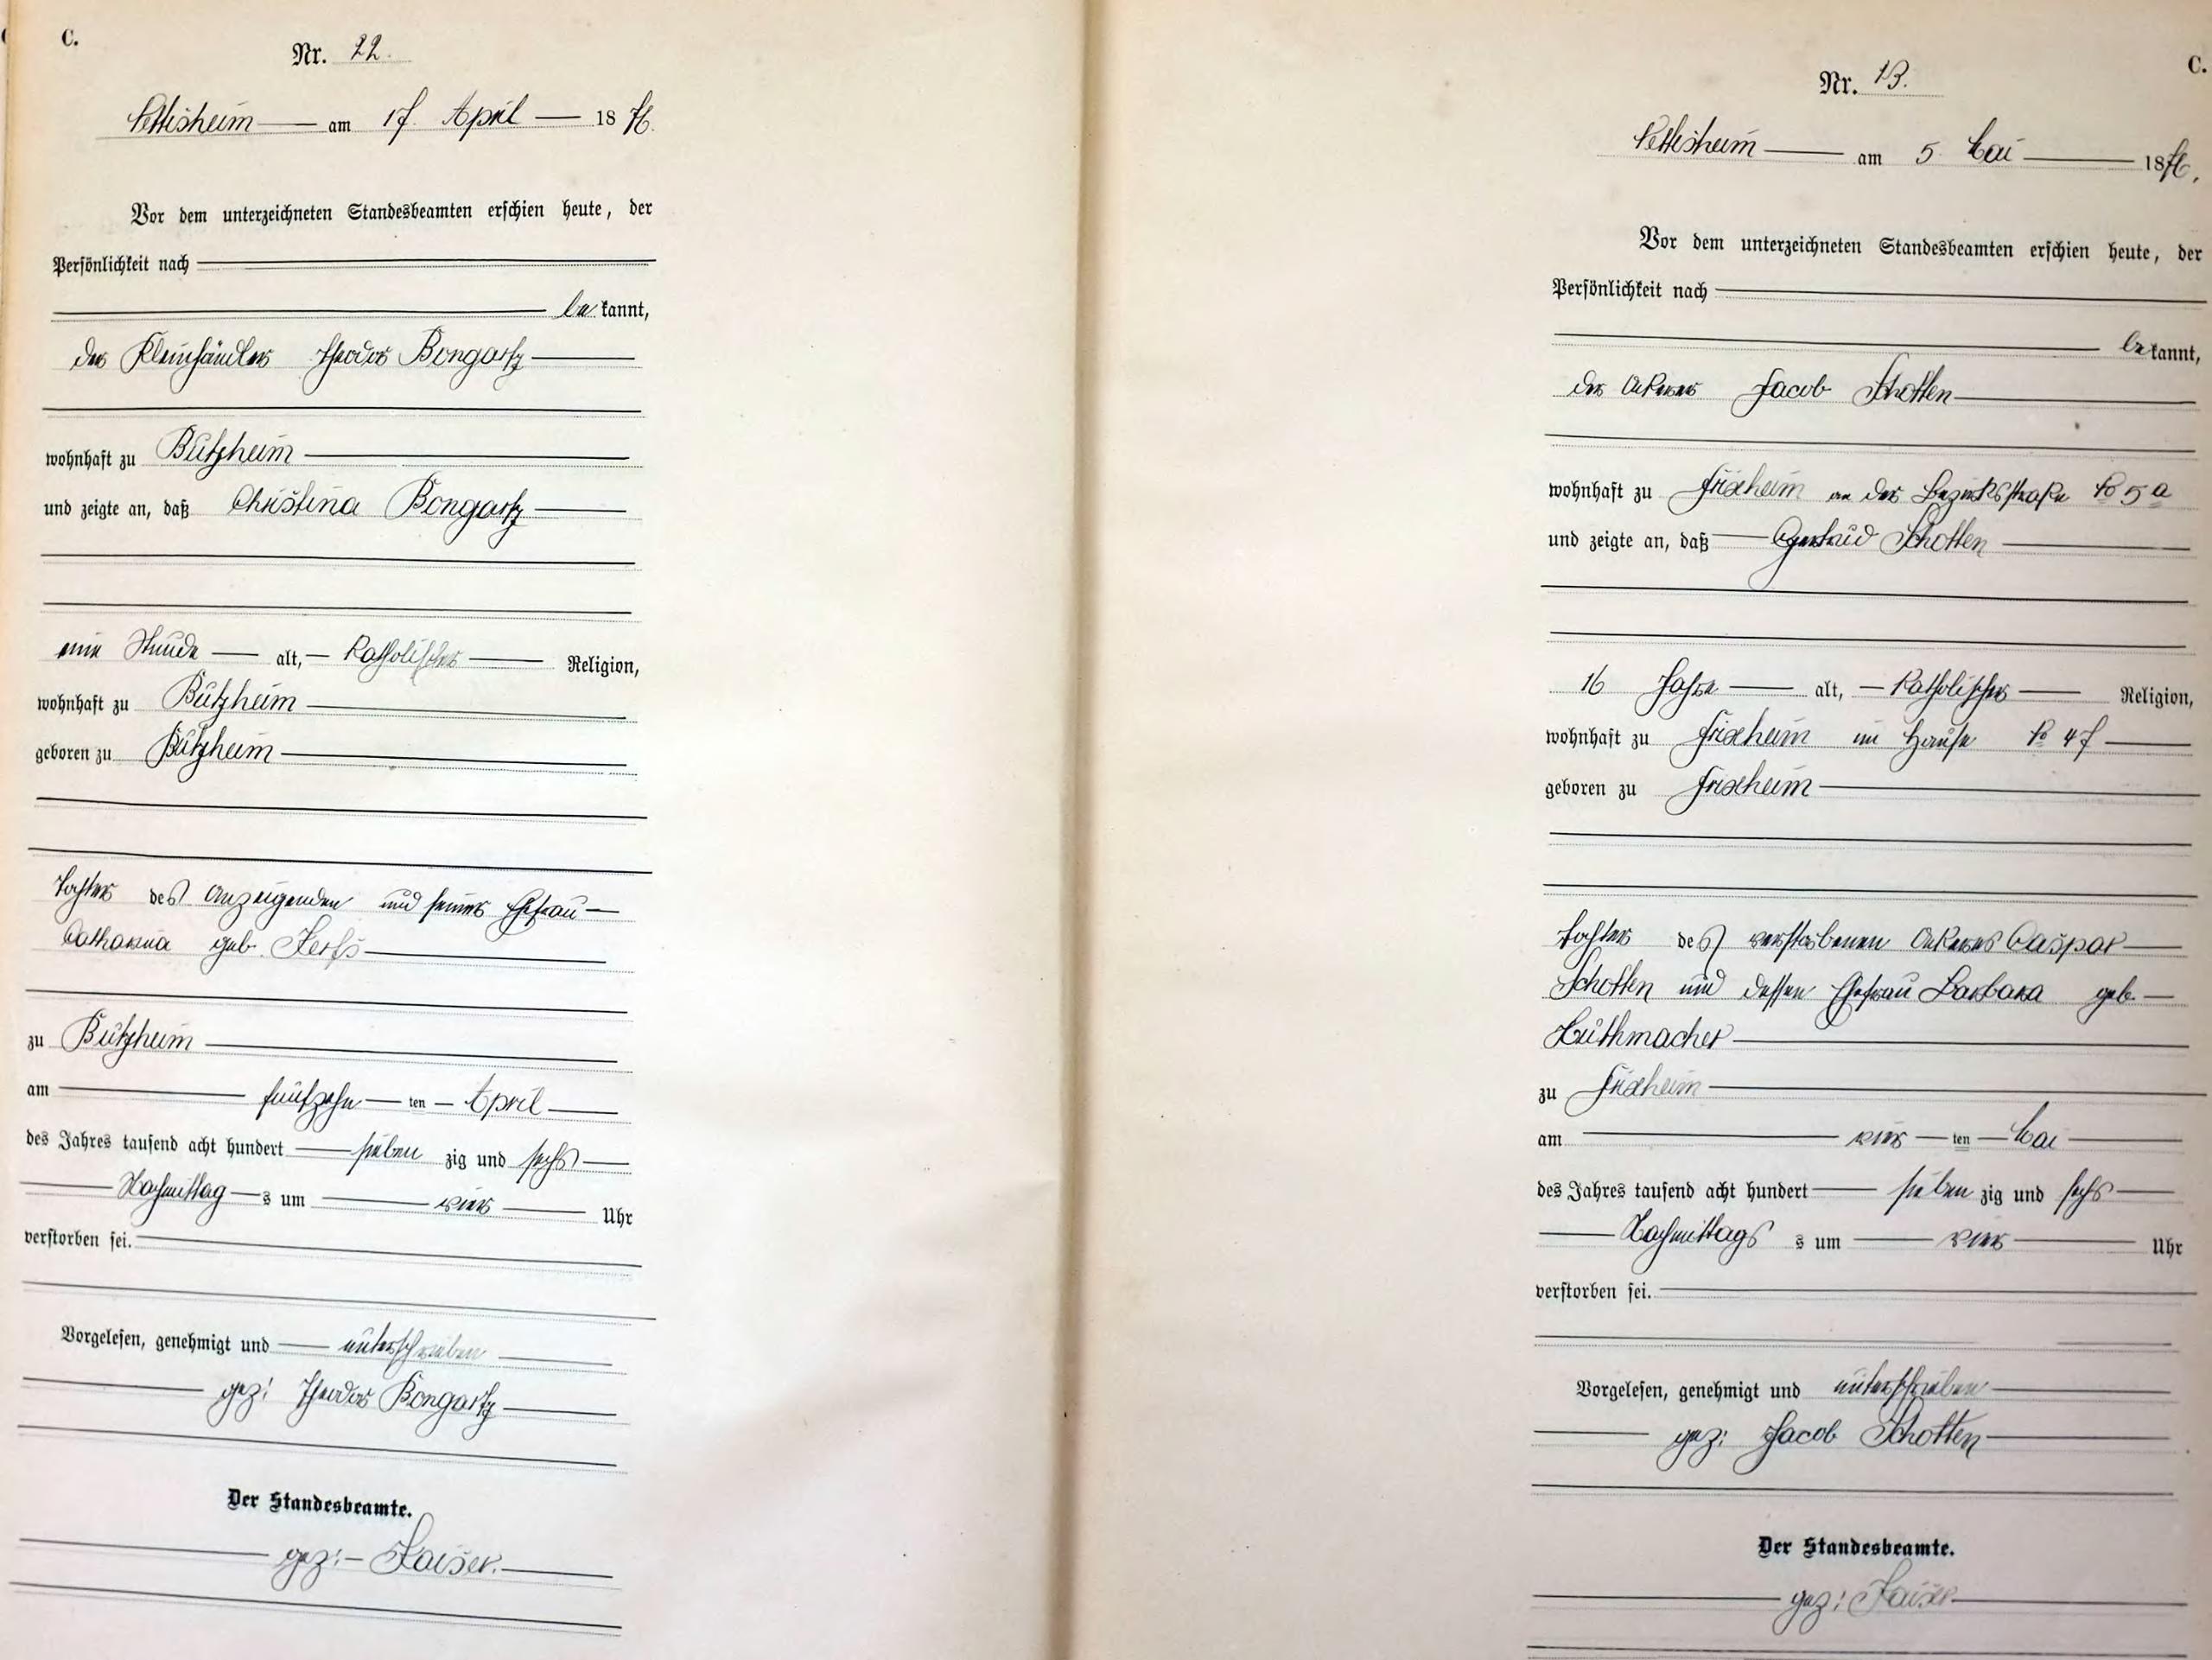 C.
Nr. 22.
Nettesheim am 17. April 1876.
Vor dem unterzeichneten Standesbeamten erschien heute, der
Persönlichkeit nach
bekannt,
der Kleinhändler Theodor Bongartz
wohnhaft zu Bützheim
und zeigte an, daß Christina Bongartz
eine Stunde alt, katholischer Religion,
wohnhaft zu Bützheim
geboren zu Bützheim
Tochter des Anzeigenden und seiner Ehefrau
Catharina geb.
zu Bützheim
am fünfzehn ten April
des Jahres tausend acht hundert sieben zig und sechs
Nachmittag s um vier Uhr
verstorben sei.
Vorgelesen, genehmigt und unterschrieben
gez: Theodor Bongartz
Der Standesbeamte.
gez: Kaiser.
C.
Nr.
Nettesheim am 5. Mai 1876.
Vor dem unterzeichneten Standesbeamten erschien heute, der
Persönlichkeit nach
bekannt,
der Ackerer Jacob Schotten
wohnhaft zu Frixheim an der Bezirksstraße No 5 a
und zeigte an, daß Gertrud Schotten
16 Jahre alt, katholischer Religion,
wohnhaft zu Frixheim im Hause No 47
geboren zu Frixheim
Tochter des verstorbenen Ackerers Caspar
Schotten und dessen Ehefrau Barbara geb.
Huthmacher
zu Frixheim
am vier ten Mai
des Jahres tausend acht hundert sieben zig und sechs
Nachmittags s um vier Uhr
verstorben sei.
Vorgelesen, genehmigt und unterschrieben
gez: Jacob Schotten
Der Standesbeamte.
gez: Kaiser